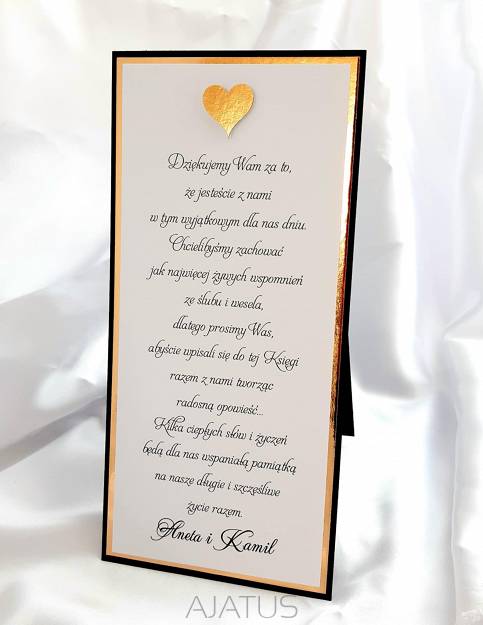 Dziękujemy Wam za to,
że jesteście z nami
w tym wyjątkowym dla nas dniu.
Chcielibyśmy zachować
jak najwięcej żywych wspomnień
ze ślubu i wesela,
dlatego prosimy Was,
abyście wpisali się do tej Księgi
razem z nami tworząc
radosną opowieść...
Kilka ciepłych słów i życzeń
będą dla nas wspaniałą pamiątką
na nasze długie i szczęśliwe
życie razem.
Aneta i Kamil
AJATUS